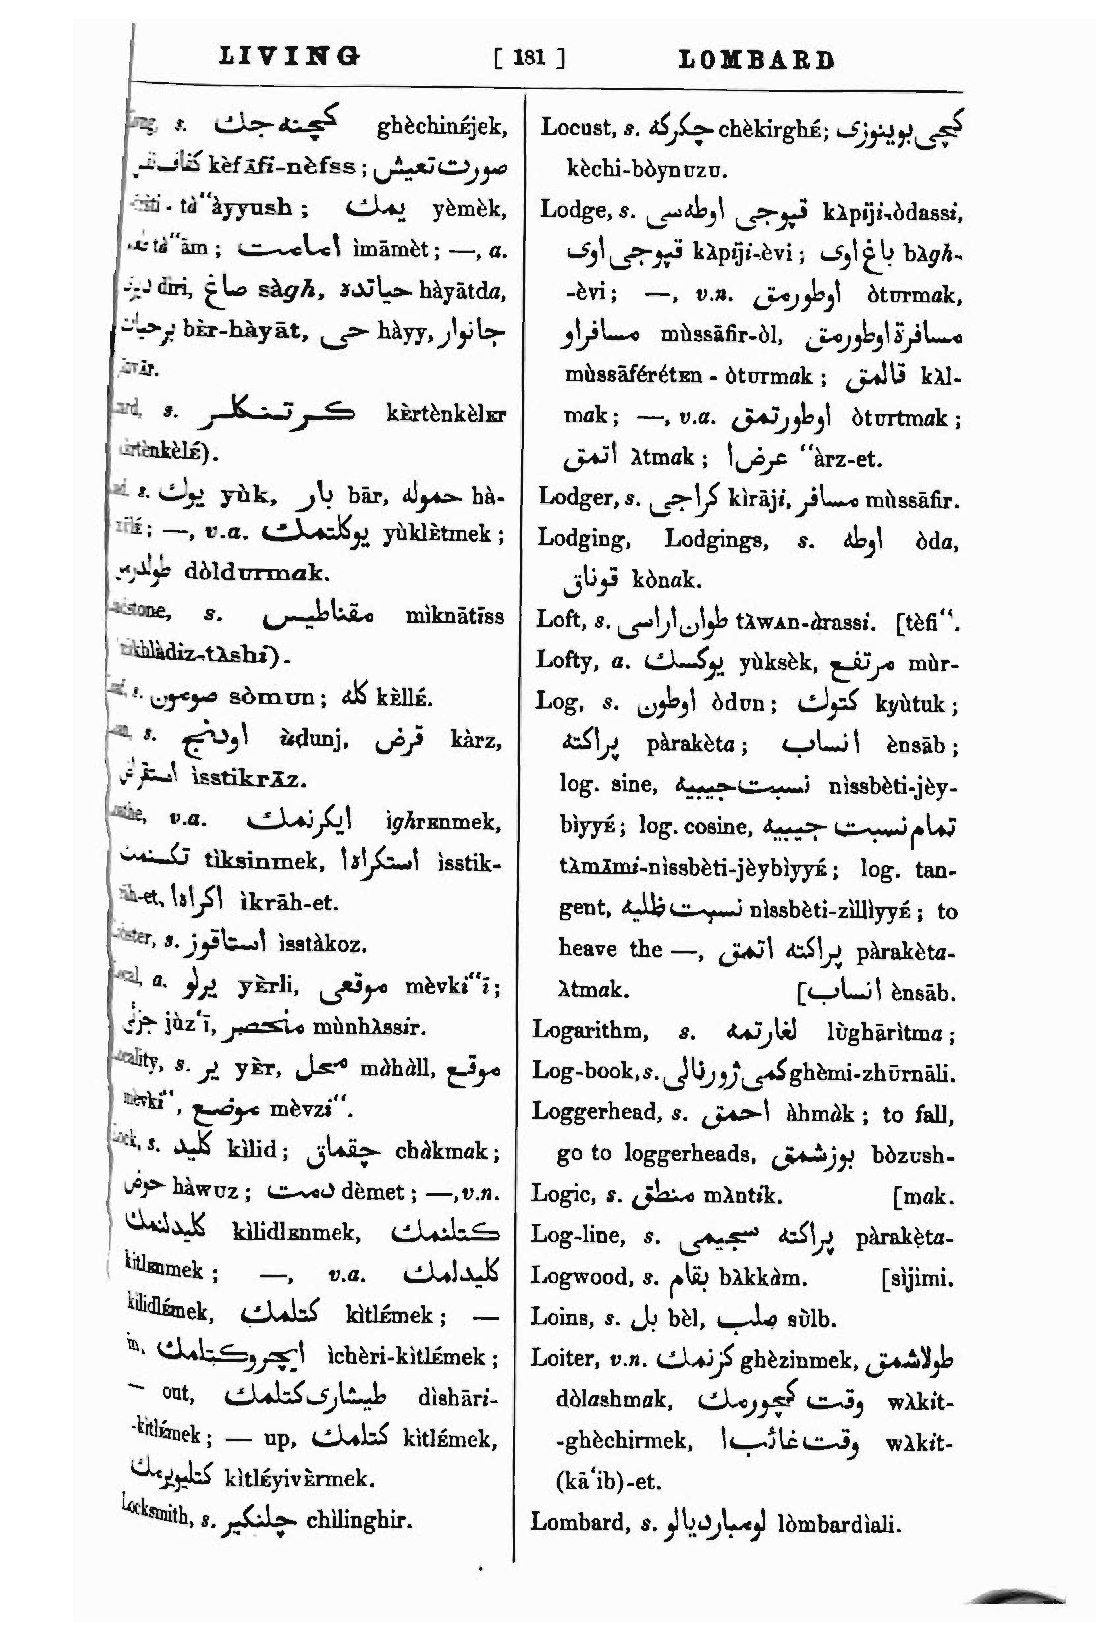 LIVING [ 181 ] LOMBARD
s. كچنه‌جك ghèchinÉjek,
كفاف نفس kèfĀfi-nèfss; صورت تعيش
- tà“àyyush; يمك yèmèk,
tà“ām; اعاست ìmāmèt; —, a.
dìri, صاغ sàgh, حياتده hàyātda,
برحيات bÈr-hàyāt, حى hàyy, جانوار
jānvār.
s. كرتنكلر kÈrtènkèlᴇr
kÈrtènkèlÉ).
s. يوك yùk, بار bār, حموله hà-
—, v.a. يوكلتمك yùklÈtmek;
طولدرمق dòldᴜrmak.
Loadstone, s. مقناطيس mìknātīss
(mìkhlàdiz-tλshi).
s. صومون sòmᴜn; كله kÈllÉ.
s. اودنج ùdunj, قرض kàrz,
استقراض ìsstikrĀz.
v.a. ايكرنمك ìghrᴇnmek,
تكسنمك tìksinmek, استكراه ا ìsstik-
ràh-et, اكراه ا ìkrāh-et.
Lobster, s. استاقوز ìsstàkoz.
Local, a. يرلو yÈrli, موقعى mèvki“ī;
جزئى jùz‘ī, منحصر mùnhλssir.
Locality, s. ير yÈr, محل màhàll, موقع
mèvki“, موضع mèvzi“.
Lock, s. كليد kìlid; چقماق chàkmak;
حوض hàwᴜz; دمت dèmet; —, v.n.
كليدلنمك kìlidlᴇnmek, كتلنمك
kìtlᴇnmek; —, v.a. كليدلمك
kìlidlÉmek, كتلمك kìtlÉmek; —
in, ايچرو كتلمك ìchèri-kìtlÉmek;
— out, طيشارى كتلمك dìshāri-
-kìtlÉmek; — up, كتلمك kìtlÉmek,
كتليويرمك kìtlÉyivÈrmek.
Locksmith, s. چلنكير chìlinghir.
Locust, s. چكركه chèkirghÉ; كچى بوينوزى
kèchi-bòynᴜzᴜ.
Lodge, s. قپوجى اوطه‌سى kλpiji-òdassi,
قپوجى اوى kλpiji-èvi; باغ اوى bλgh-
-èvi; —, v.n. اوطورمق òtᴜrmak,
مسافر او mùssāfir-òl, مسافرة اوطورمق
mùssāférétᴇn - òtᴜrmak; قالمق kλl-
mak; —, v.a. اوطورتمق òtᴜrtmak;
اتمق λtmak; عرض ا “àrz-et.
Lodger, s. كراجى kìrāji, مسافر mùssāfir.
Lodging, Lodgings, s. اوطه òda,
قوناق kònak.
Loft, s. طوان اراسى tλwᴀn-àrassi. [tèfi“.
Lofty, a. يوكسك yùksèk, مرتفع mùr-
Log, s. اوطون òdᴜn; كتوك kyùtuk;
پراكته pàrakèta; انساب ènsāb;
log. sine, نسبت جيبيه nìssbèti-jèy-
bìyyÉ; log. cosine, تمام نسبت جيبيه
tλmλmi-nìssbèti-jèybìyyÉ; log. tan-
gent, نسبت ظليه nìssbèti-zìllìyyÉ; to
heave the —, پراكته اتمق pàrakèta-
λtmak. [انساب ènsāb.
Logarithm, s. لغارتمه lùghārìtma;
Log-book, s. كمى ژورنالى ghèmi-zhūrnāli.
Loggerhead, s. احمق àhmàk; to fall,
go to loggerheads, بوزشمق bòzᴜsh-
Logic, s. منطق mλntik. [mak.
Log-line, s. پراكته سجيمى pàrakèta-
Logwood, s. بقام bλkkàm. [sìjimi.
Loins, s. بل bèl, صلب sùlb.
Loiter, v.n. كزنمك ghèzinmek, طولاشمق
dòlashmak, وقت كچورمك wλkit-
-ghèchirmek, وقت غائب ا wλkit-
(kā‘ib)-et.
Lombard, s. لومبارديالو lòmbardìali.